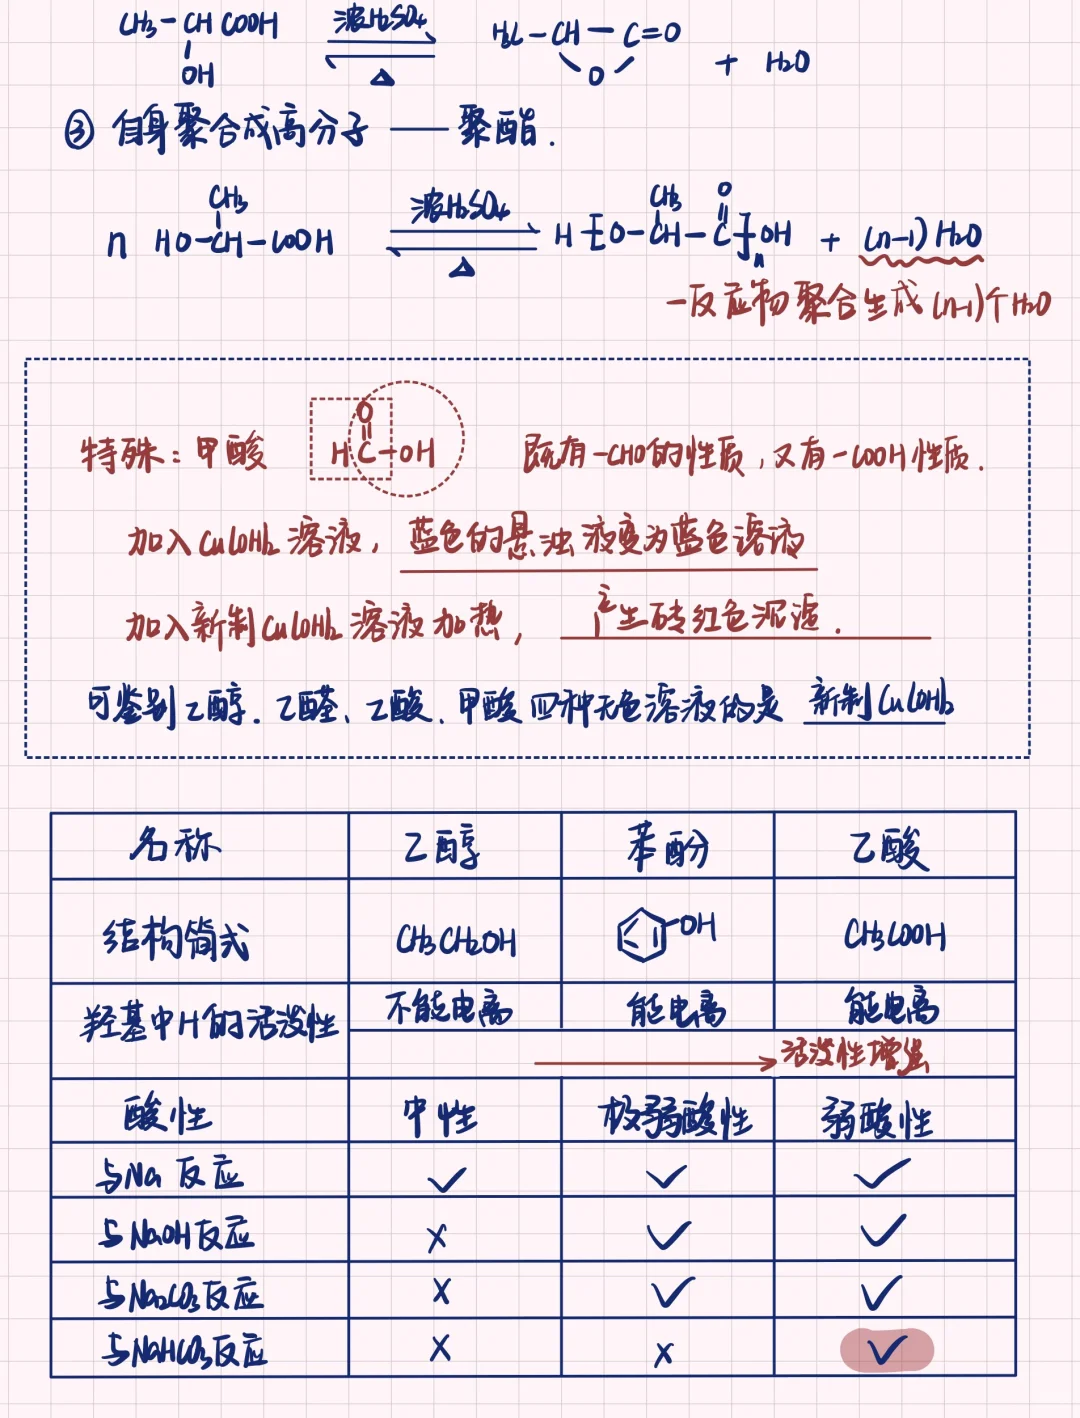 CH3-CHCOOH 浓H2SO4 H3C-CH-C=O
OH △ O + H2O
③ 自身聚合成高分子 —— 聚酯.
CH3 浓H2SO4 CH3 O
n HO-CH-COOH △ H[O-CH-C]nOH + (n-1)H2O
一反应物聚合生成(n-1)个H2O
O
特殊: 甲酸 HC-OH 既有-CHO的性质,又有-COOH性质.
加入Cu(OH)2溶液, 蓝色的悬浊液变为蓝色溶液
加入新制Cu(OH)2溶液加热, 产生砖红色沉淀.
可鉴别乙醇.乙醛、乙酸、甲酸四种无色溶液的是 新制Cu(OH)2
名称 乙醇 苯酚 乙酸
结构简式 CH3CH2OH -OH CH3COOH
羟基中H的活泼性 不能电离 能电离 能电离
→活泼性增强
酸性 中性 极弱酸性 弱酸性
与Na反应 ✓ ✓ ✓
与NaOH反应 × ✓ ✓
与Na2CO3反应 × ✓ ✓
与NaHCO3反应 × × ✓